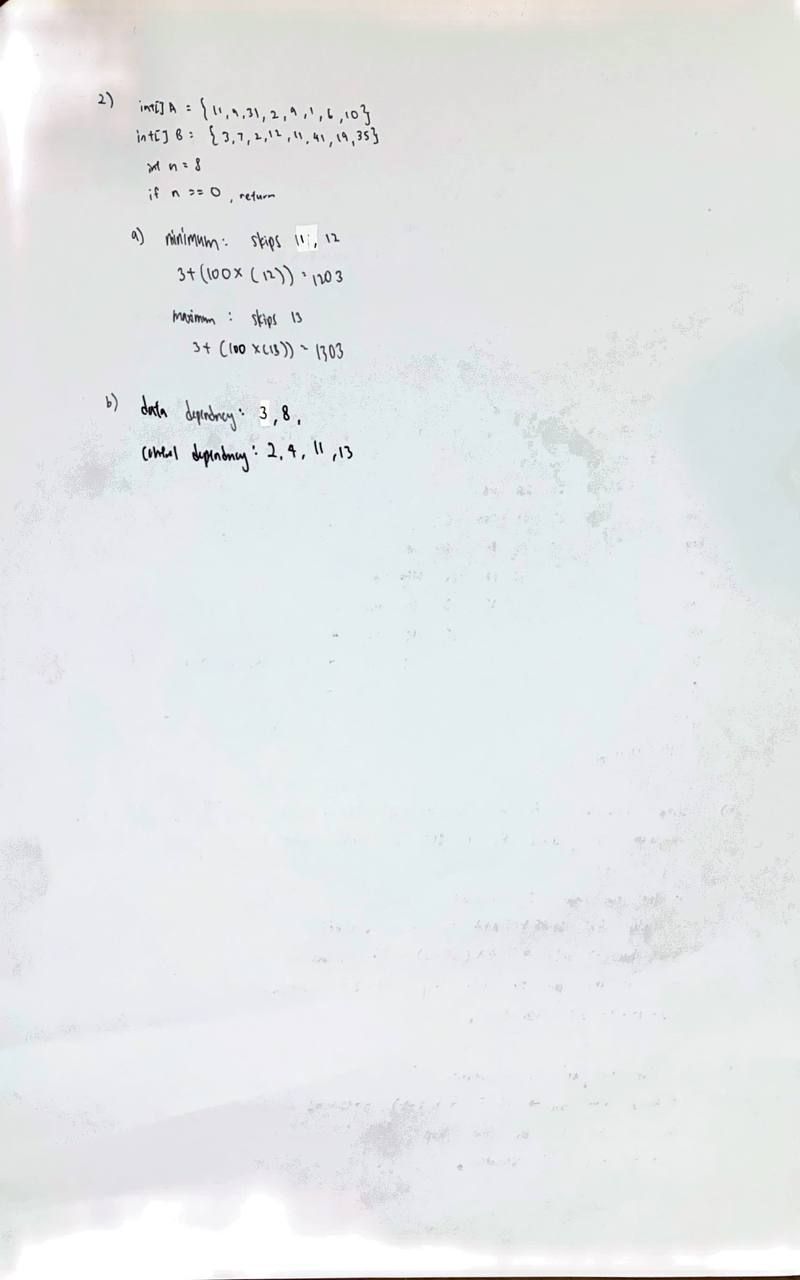 2) int[] A = {11,9,31,2,9,1,6,10}
int[] B = {3,7,2,12,11,41,19,35}
int n = 8
if n == 0, return
a) minimum: skips 11, 12
3+(100×(12)) = 1203
maximum: skips 13
3+(100×(13)) = 1303
b) data dependency: 3,8,
control dependency: 2,4,11,13